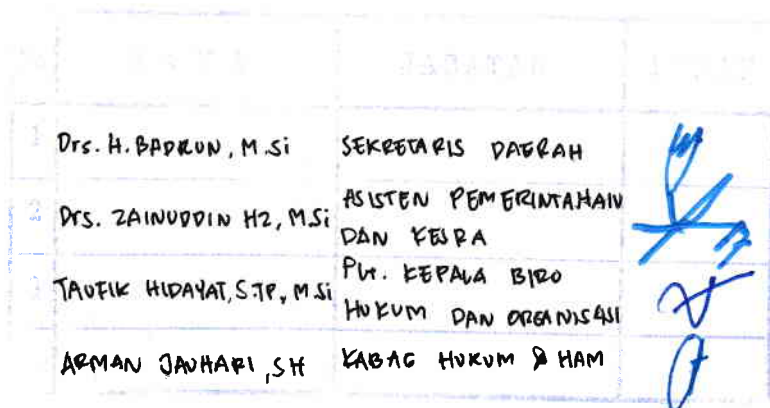 Drs. H. BADRUN, M.Si SEKRETARIS DAERAH
Drs. ZAINUDDIN HZ, M.Si ASISTEN PEMERINTAHAN
DAN KESRA
TAUFIK HIDAYAT, S.TP, M.Si Plt. KEPALA BIRO
HUKUM DAN ORGANISASI
ARMAN JAUHARI, SH KABAG HUKUM & HAM